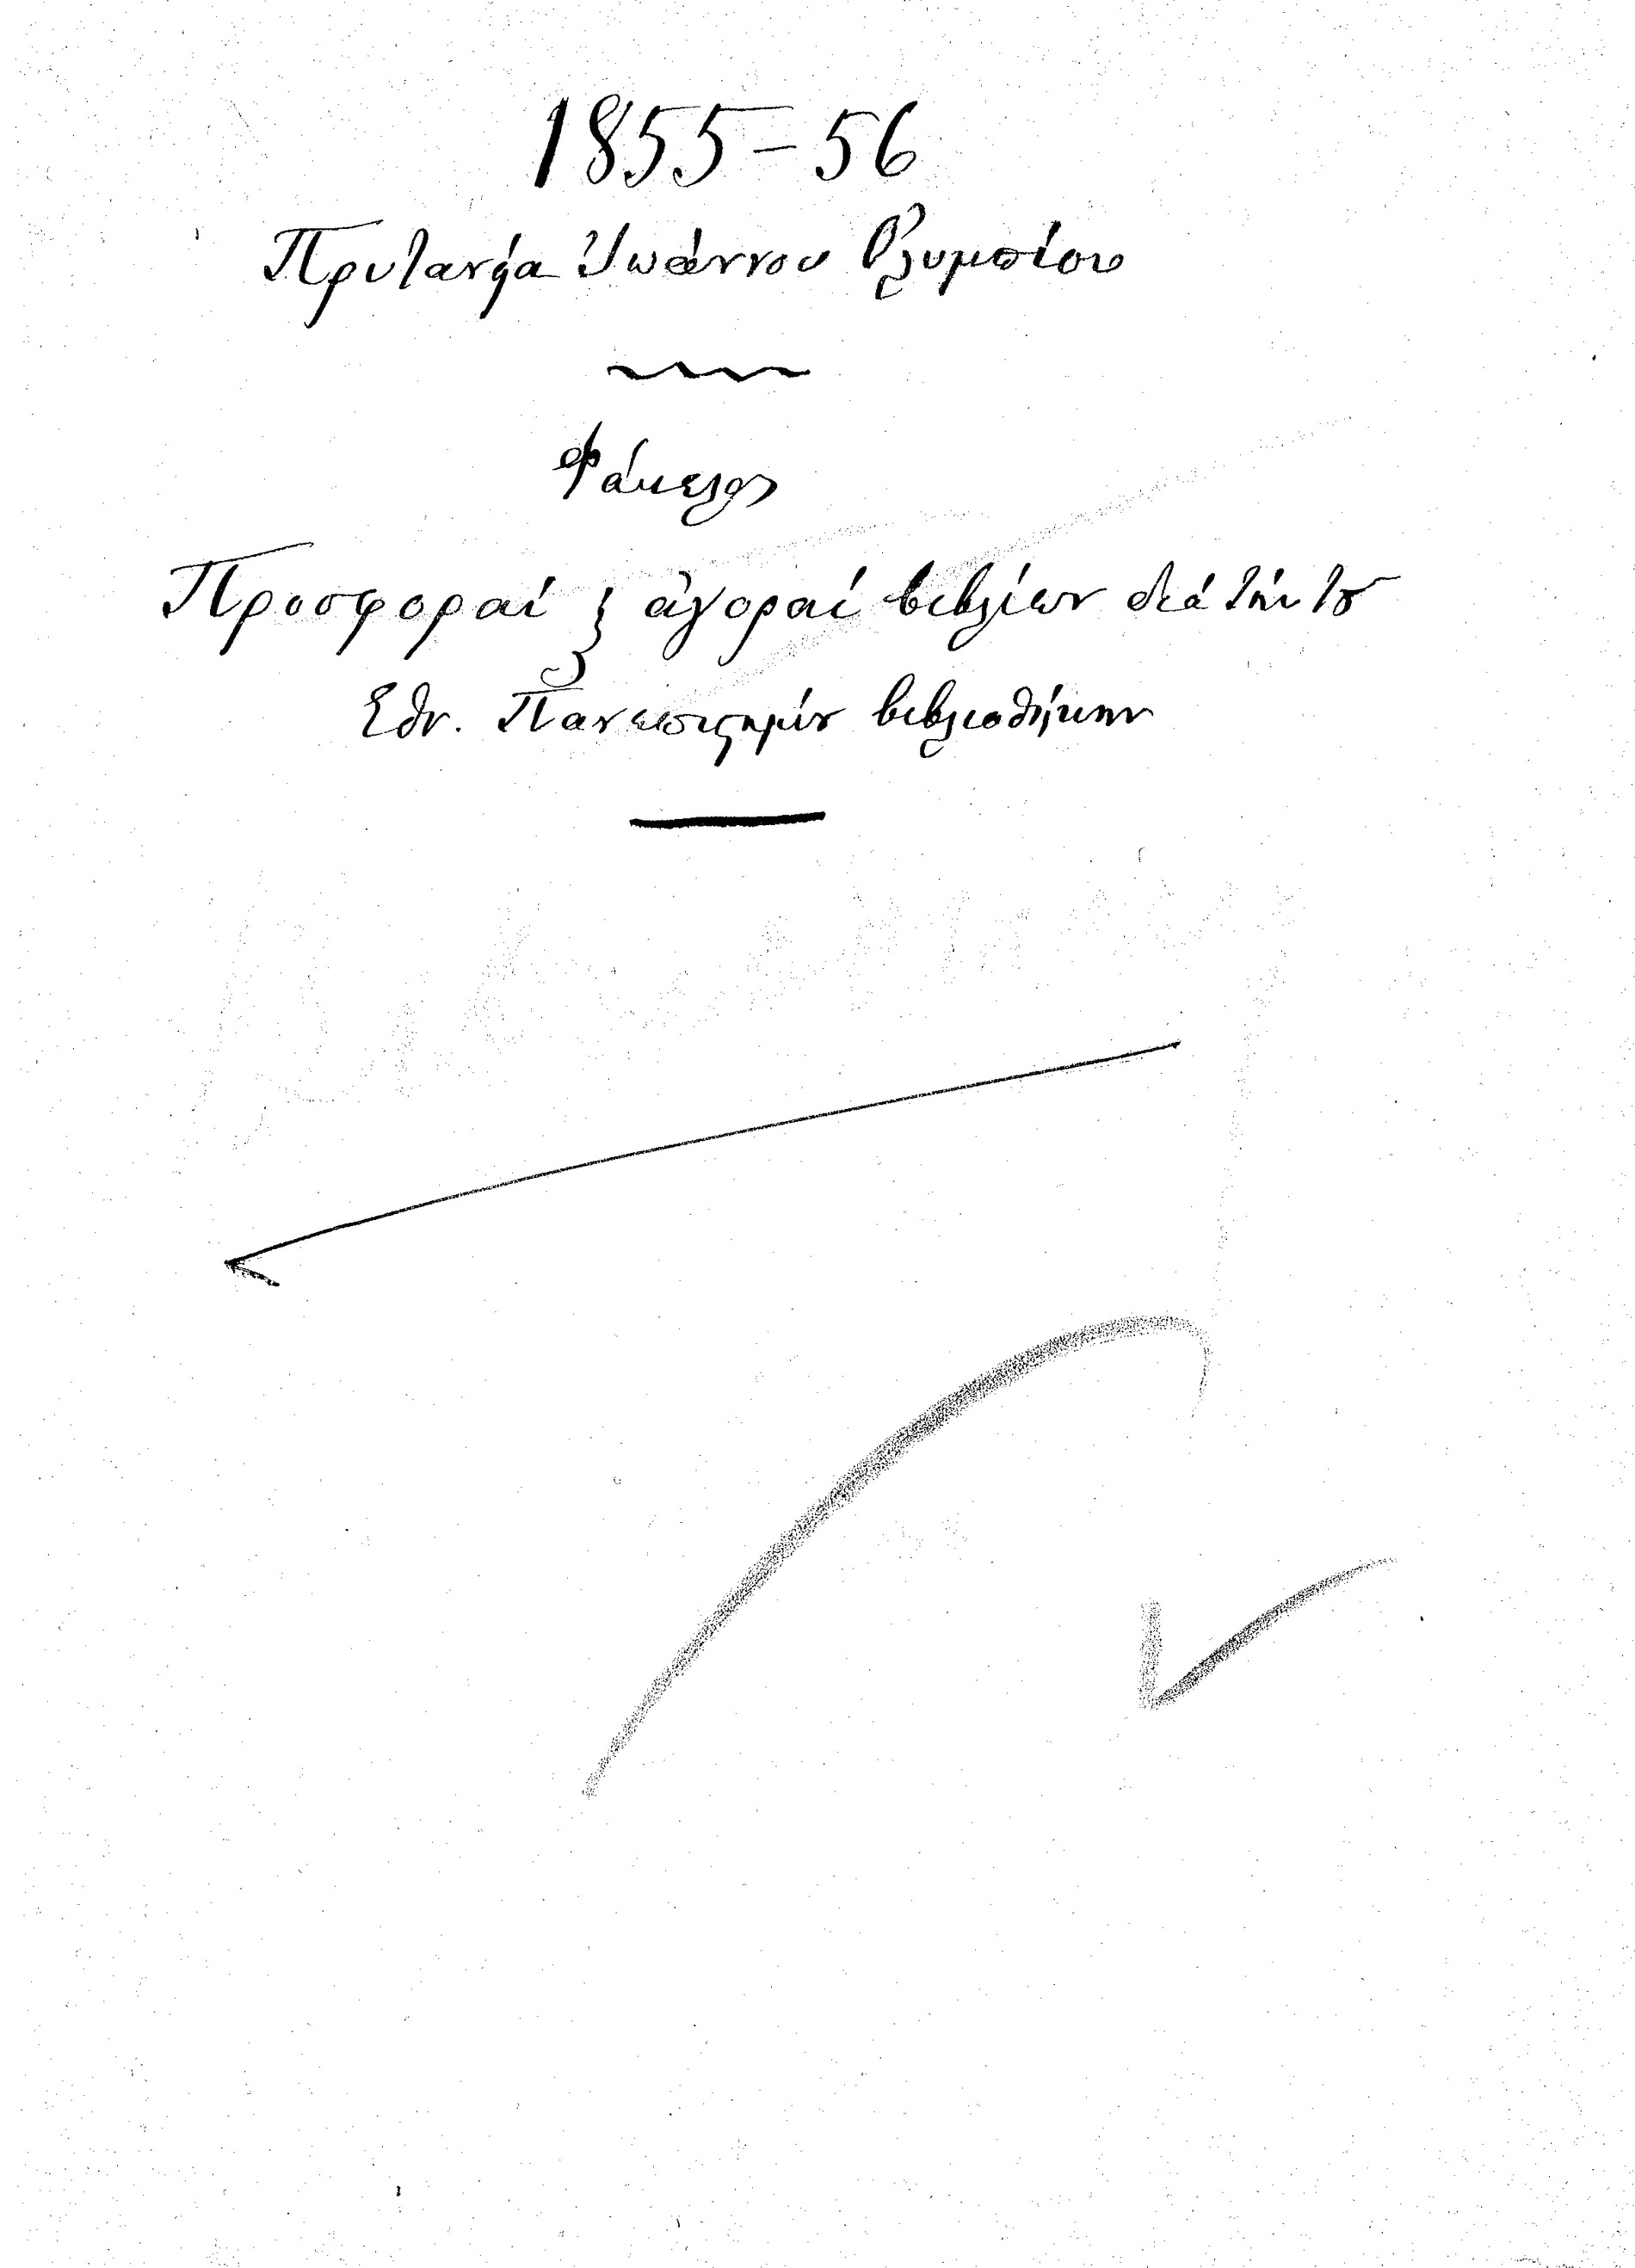 1855-56
Πρυτανεία Ἰωάννου Ὀλυμπίου
Φάκελος
Προσφοραί & ἀγοραί βιβλίων διά τήν τοῦ
Ἐθν. Πανεπιστημίου βιβλιοθήκην